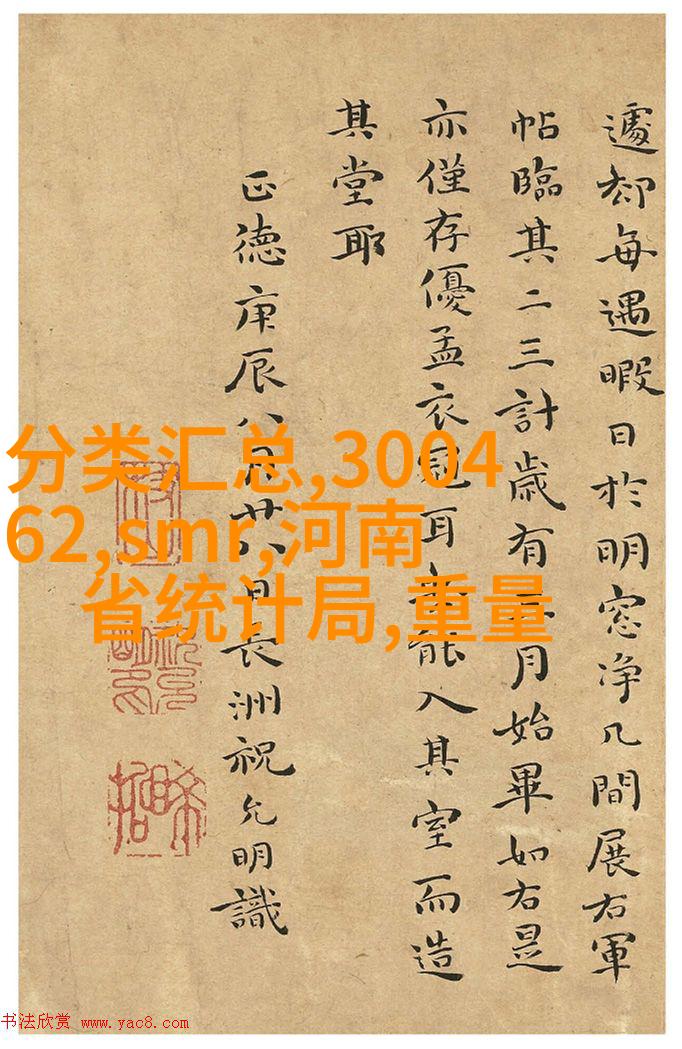 遽却每遇暇日於明窓净几間展右軍
帖臨其二三計歲有二月始畢如右是
亦僅存優孟衣冠耳未能入其室而造
其堂耶
正德庚辰八月廿八日長洲祝允明識
分类汇总,3004
62,smr,河南
省统计局,重量
书法欣赏 www.yac8.com